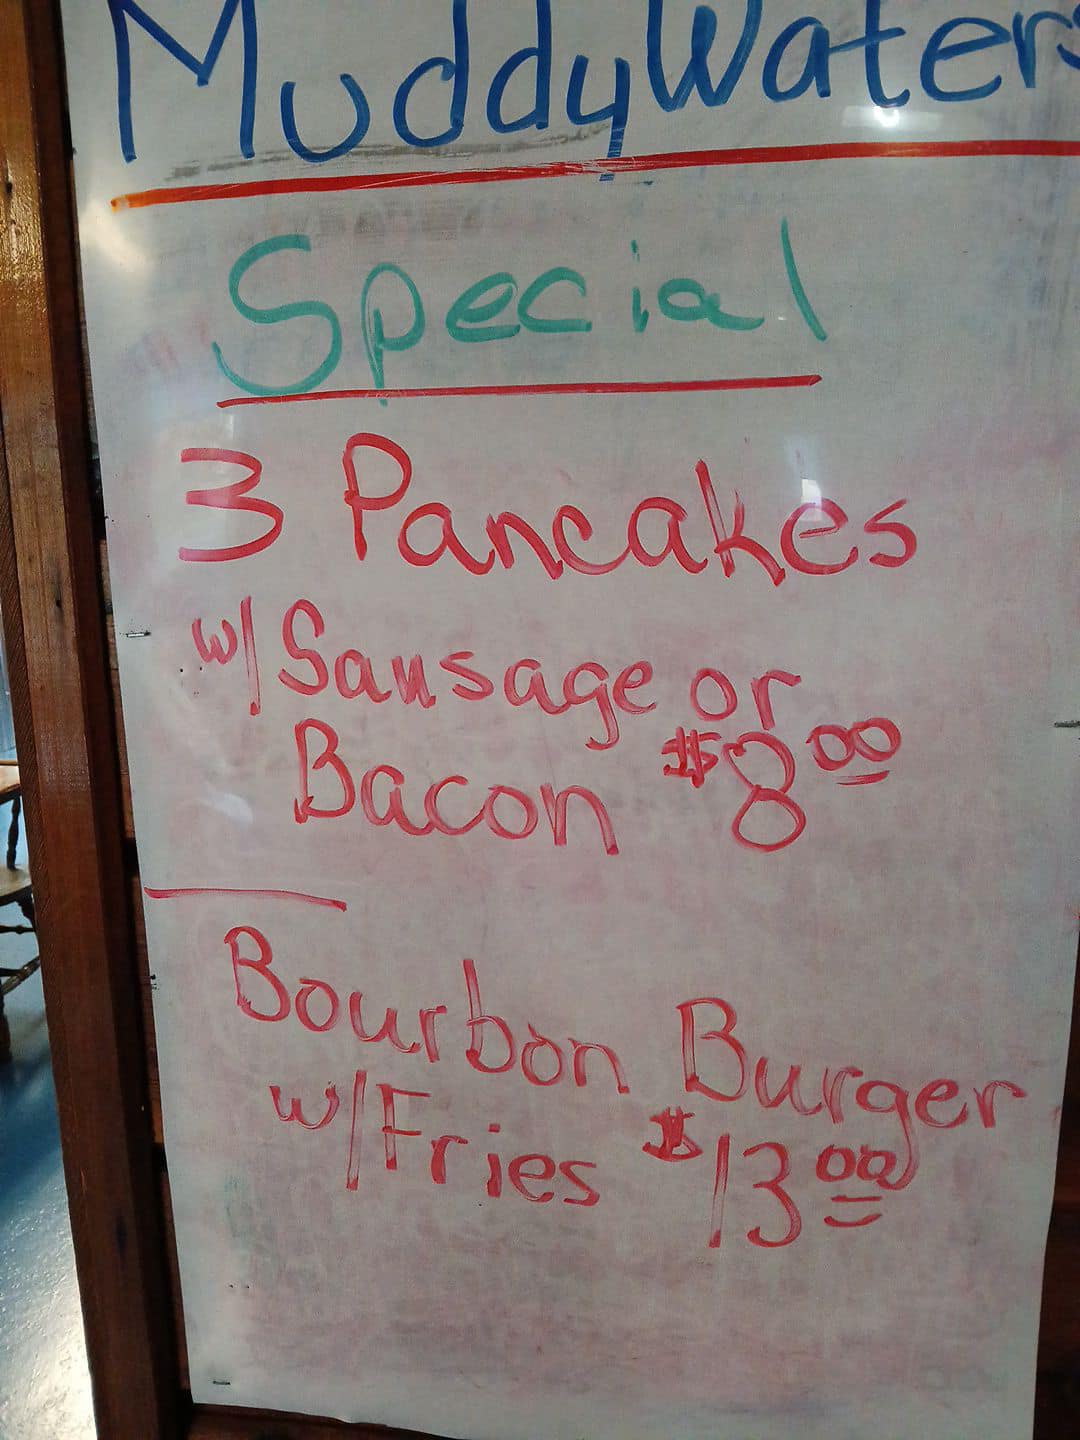 MuddyWaters
Special
3 Pancakes
w/ Sausage or
Bacon $8.00
Bourbon Burger
w/Fries $13.00